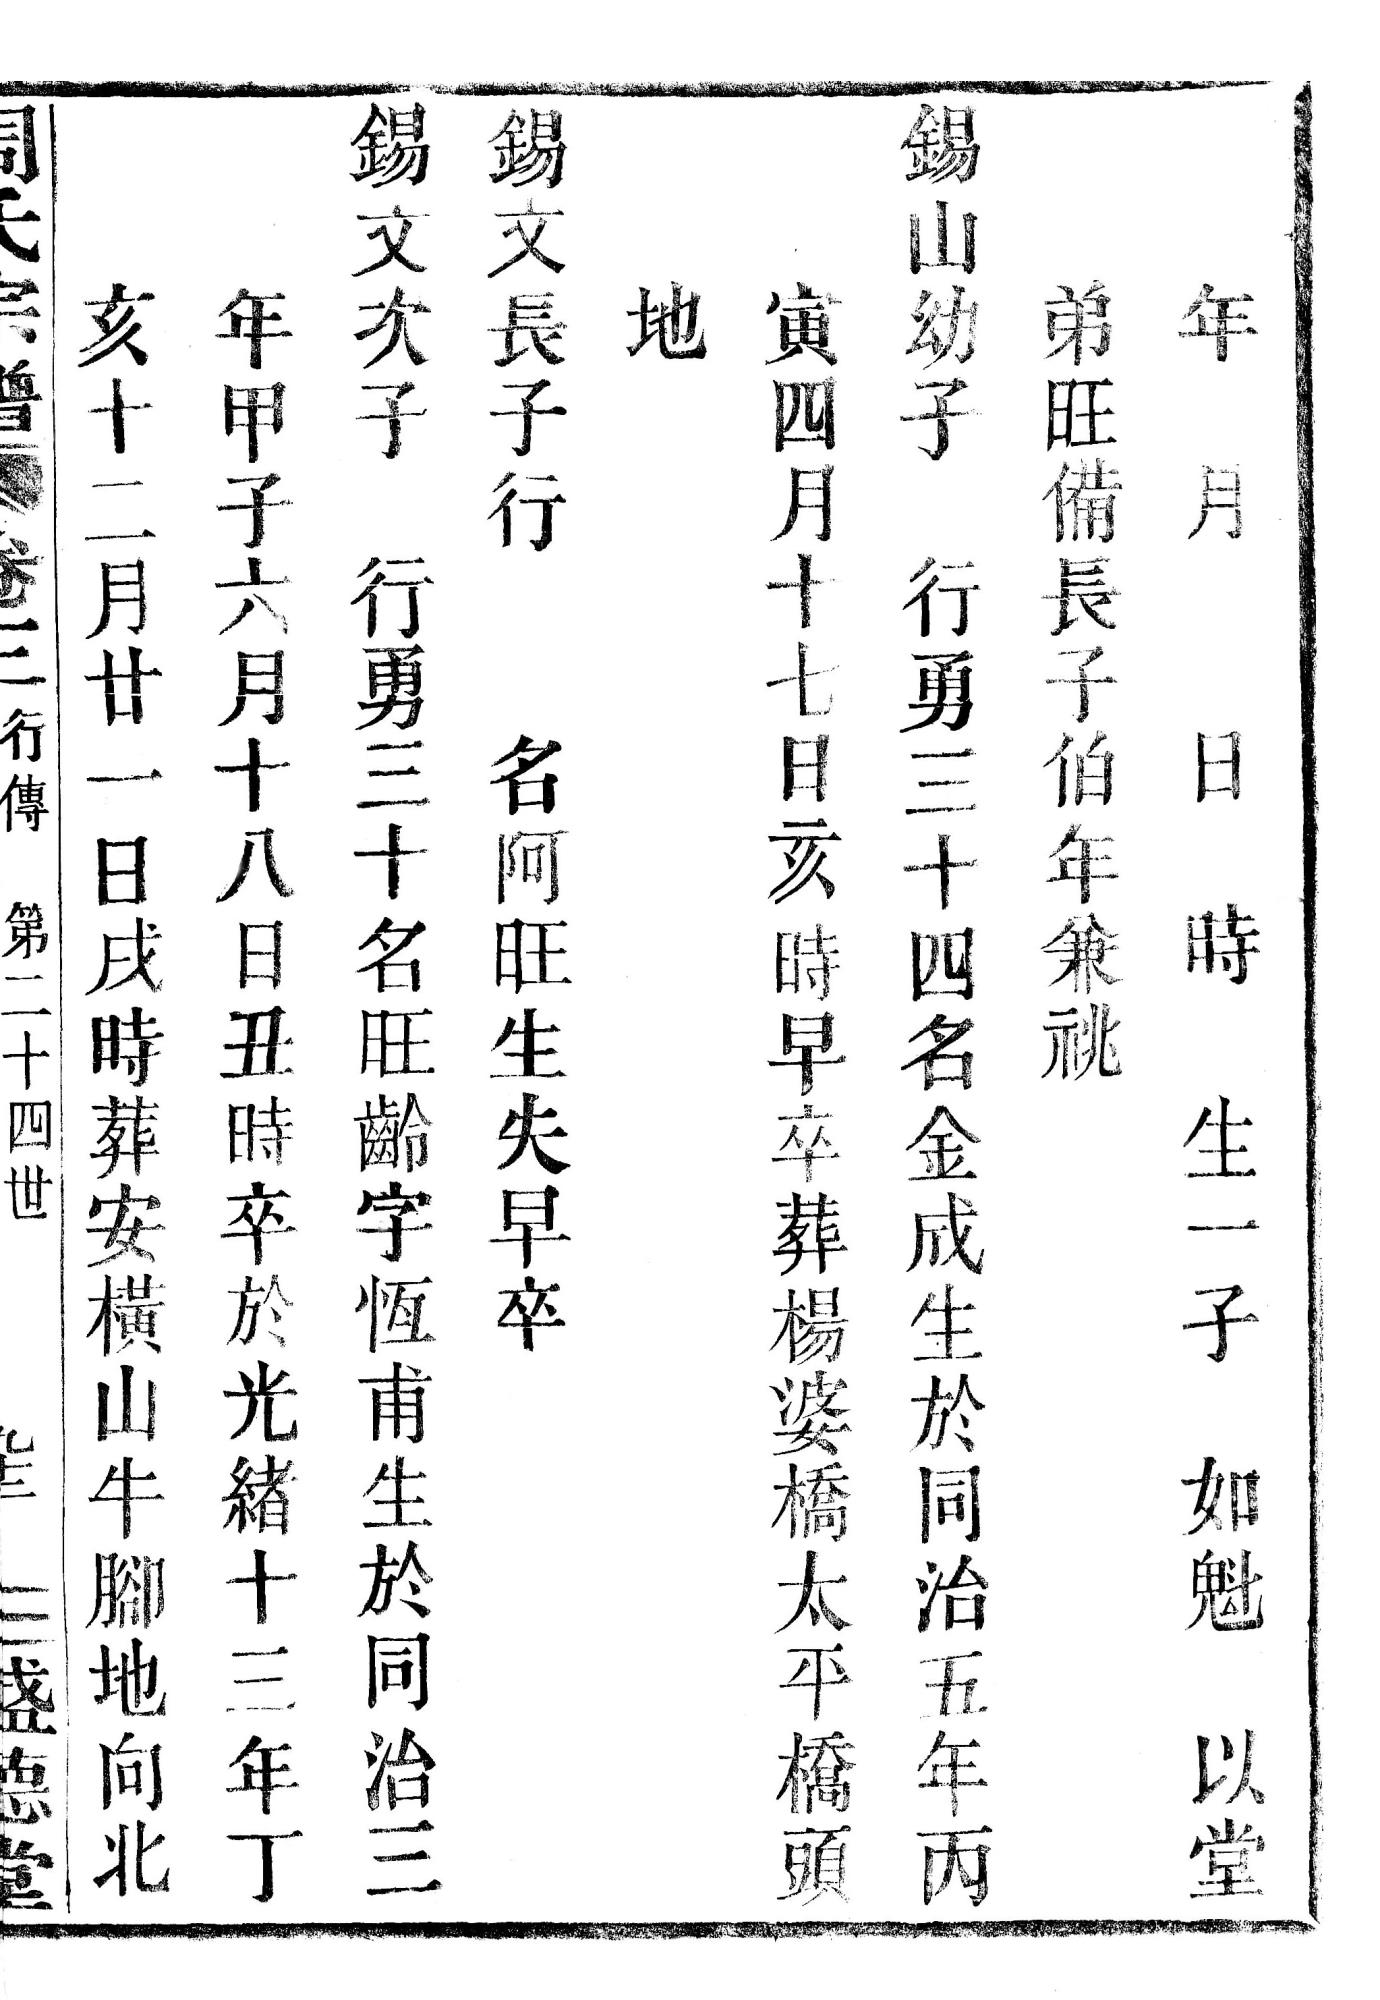 年　月　　日　時　生一子　如魁　以堂
弟旺備長子伯年兼祧
錫山幼子　行勇三十四名金成生於同治五年丙
寅四月十七日亥時早卒葬楊婆橋太平橋頭
地
錫文長子行　　名阿旺生失早卒
錫文次子　行勇三十名旺齡字恆甫生於同治三
年甲子六月十八日丑時卒於光緒十三年丁
亥十二月廿一日戌時葬安橫山牛腳地向北
周氏宗譜 卷十二 行傳　第二十四世　三盛德堂